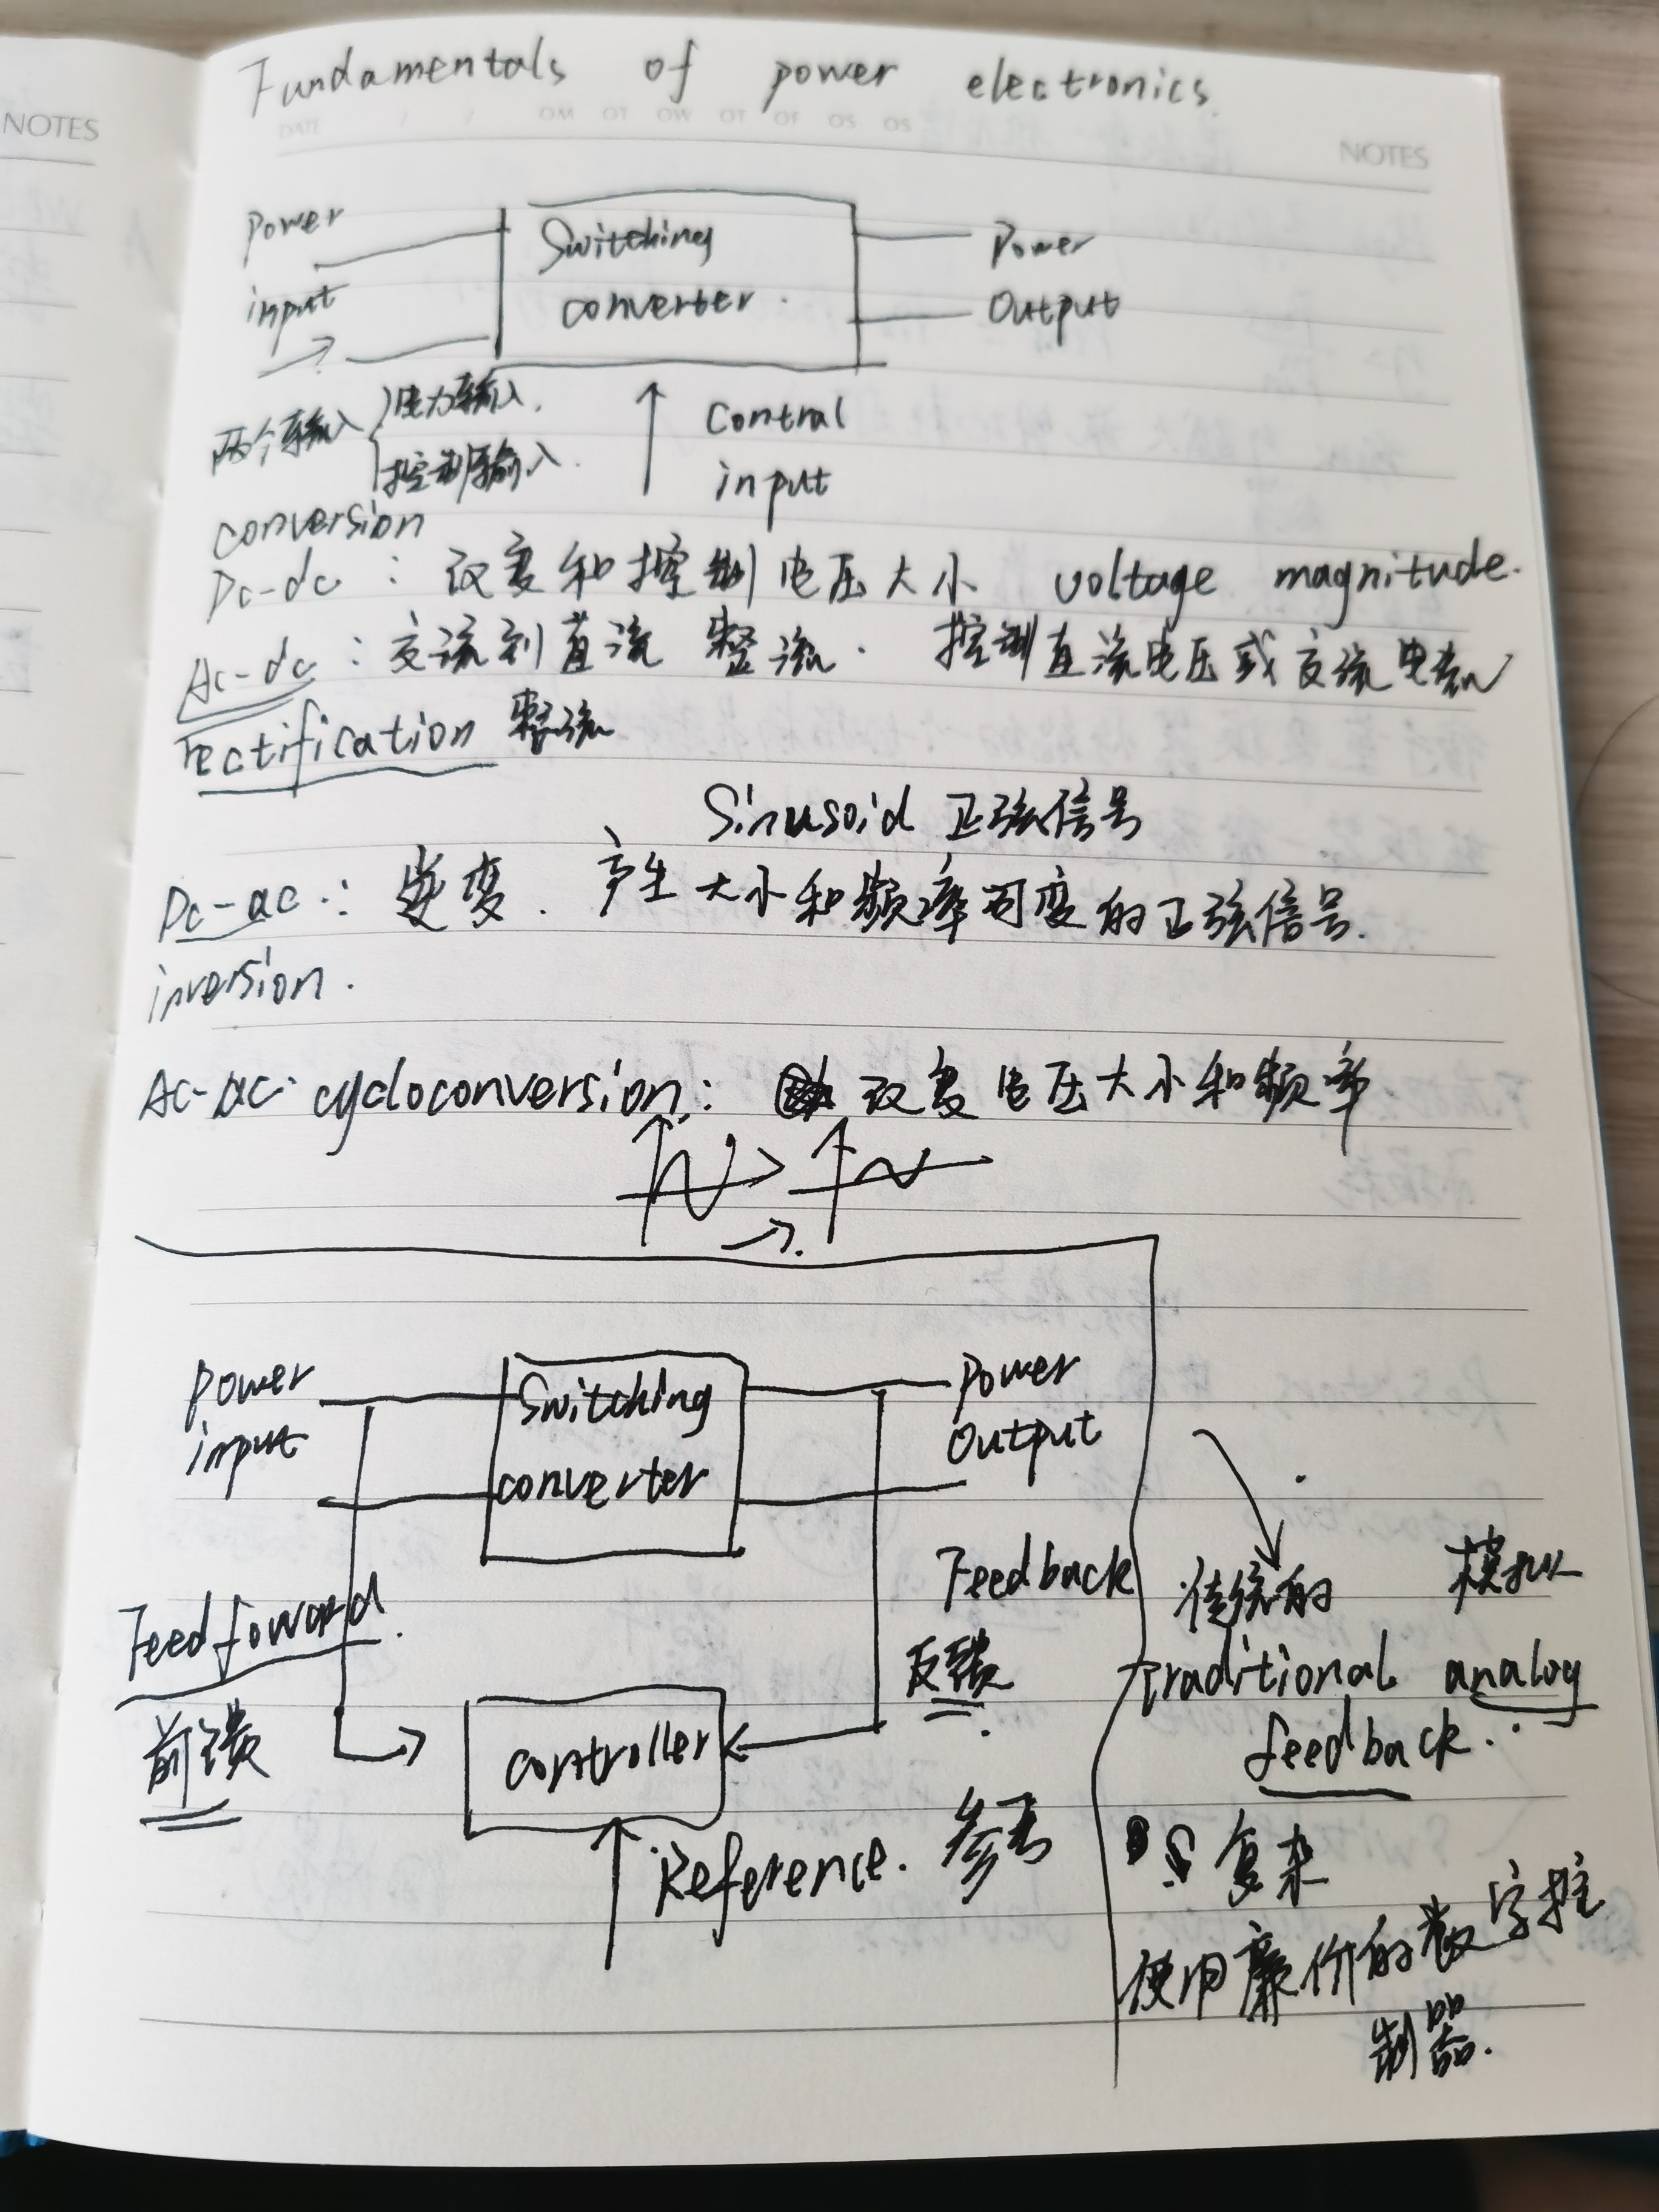 Fundamentals of power electronics
NOTES
DATE / / OM OT OW OT OF OS OS
NOTES
Power
input
Switching
converter.
Power
Output
两个输入
电力输入.
控制输入.
Contral
input
conversion
Dc-dc: 改变和控制电压大小 voltage magnitude.
Ac-dc: 交流到直流 整流. 控制直流电压或交流电流
rectification 整流
Sinusoid 正弦信号
Dc-ac: 逆变. 产生大小和频率可变的正弦信号.
inversion.
Ac-ac cycloconversion: 改变电压大小和频率
Power
input
Switching
converter
Power
Output
Feedback
反馈
Feedfoward.
前馈
controller
Reference. 参考
传统的 模拟
traditional analog
feedback.
复杂
使用廉价的数字控
制器.